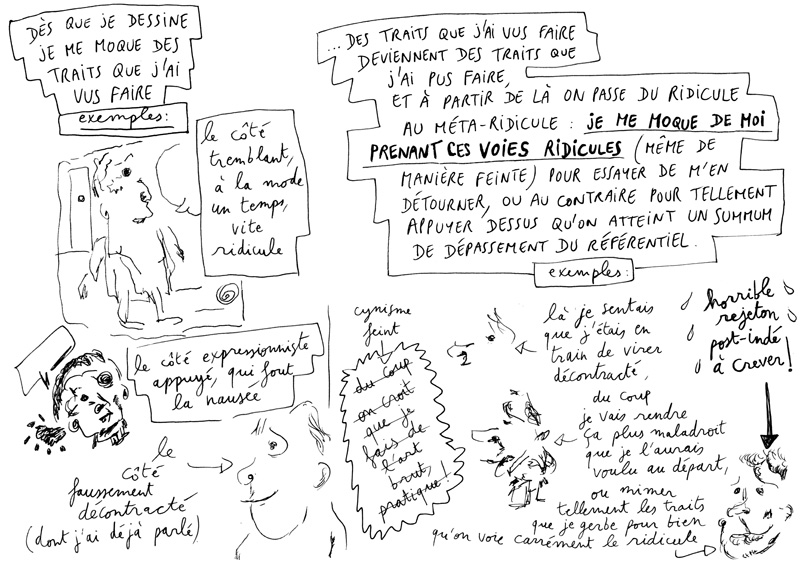 DÈS QUE JE DESSINE
JE ME MOQUE DES
TRAITS QUE J'AI
VUS FAIRE
exemples:
le côté
tremblant,
à la mode
un temps,
vite
ridicule
le côté expressionniste
appuyé, qui fout
la nausée
le
côté
faussement
décontracté
(dont j'ai déjà parlé)
... DES TRAITS QUE J'AI VUS FAIRE
DEVIENNENT DES TRAITS QUE
J'AI PUS FAIRE,
ET À PARTIR DE LÀ ON PASSE DU RIDICULE
AU MÉTA-RIDICULE : JE ME MOQUE DE MOI
PRENANT CES VOIES RIDICULES (MÊME DE
MANIÈRE FEINTE) POUR ESSAYER DE M'EN
DÉTOURNER, OU AU CONTRAIRE POUR TELLEMENT
APPUYER DESSUS QU'ON ATTEINT UN SUMMUM
DE DÉPASSEMENT DU RÉFÉRENTIEL.
exemples:
cynisme
feint
du coup
on croit
que je
fais de
l'art
brut,
pratique!
là je sentais
que j'étais en
train de virer
décontracté,
du coup
je vais rendre
ça plus maladroit
que je l'aurais
voulu au départ,
ou mimer
tellement les traits
que je gerbe pour bien
qu'on voie carrément le ridicule
horrible
rejeton
post-indé
à crever!